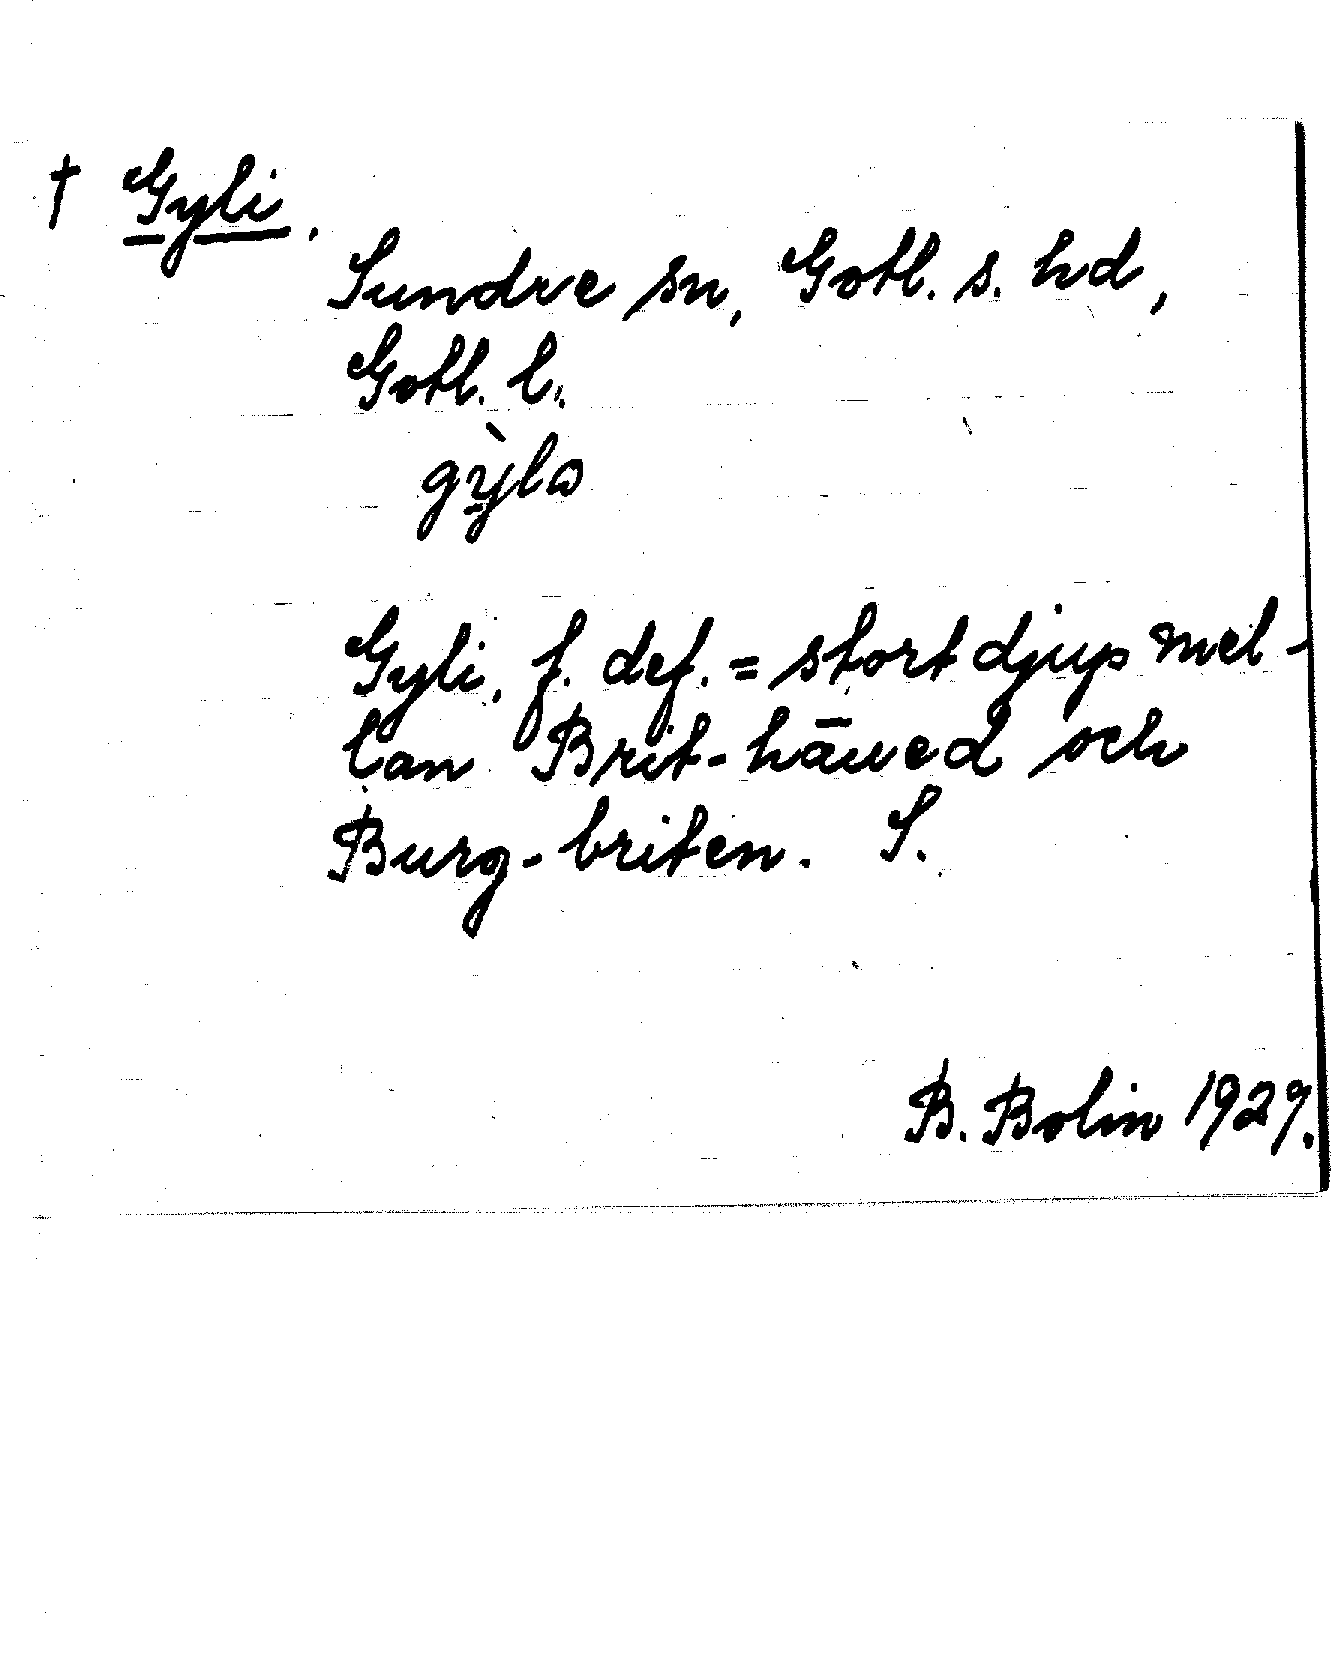 † Gyli.
Sundre sn, Gotl. s. hd,
Gotl. l.
gỳlə
Gyli, f. def. = stort djup mel-
lan Brit-hāued och
Burg-briten. S.
B. Bolin 1927.